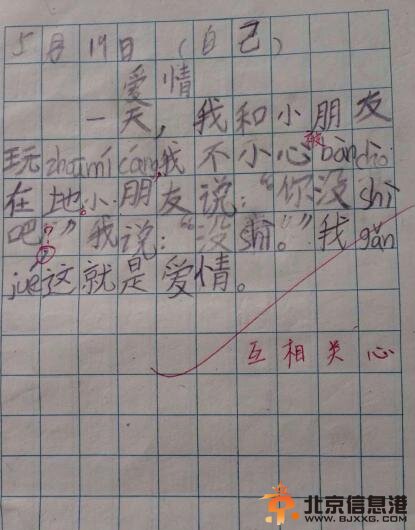 5月19日 (自己)
爱情
一天,我和小朋友
玩zhuōmícáng,我不小心被bàndǎo
在地。小朋友说:“你没shì
吧?”我说:“没shì。”我gǎn
jué这就是爱情。
互相关心
北京信息港
WWW.BJXXG.COM